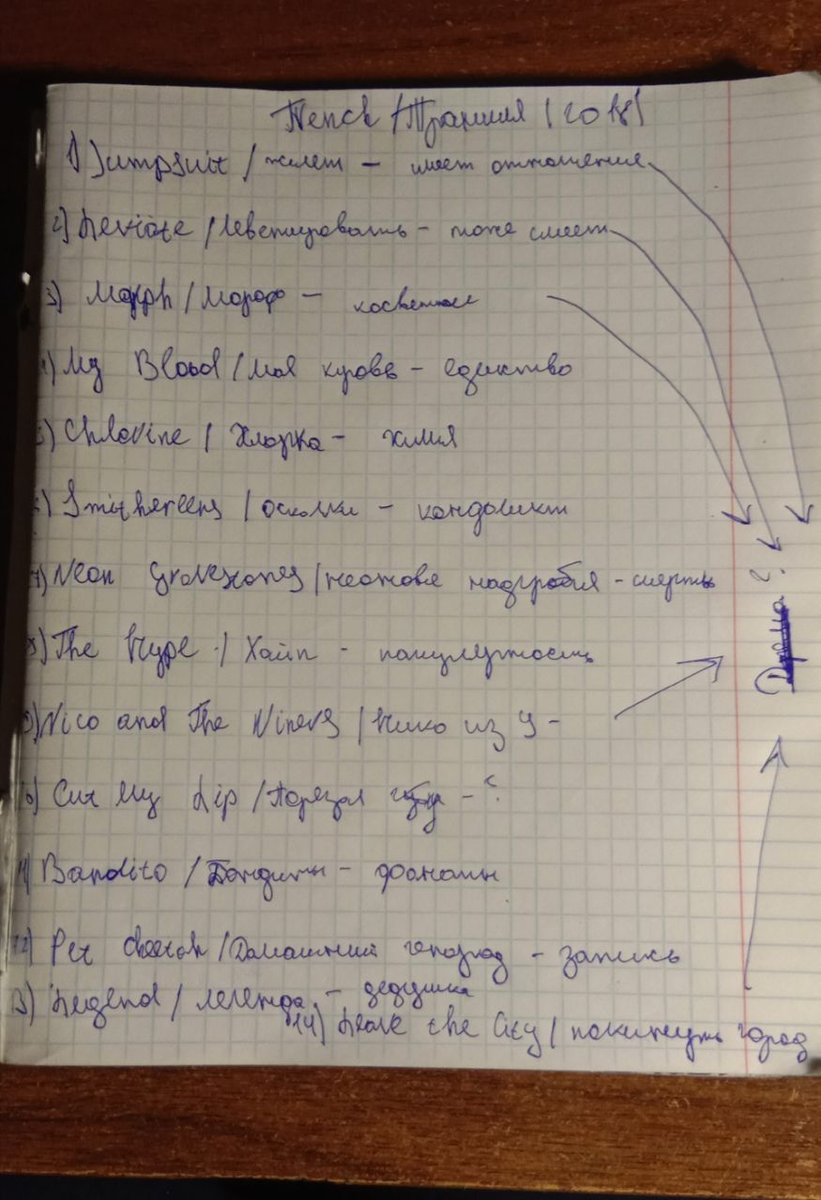 Trench / Траншея (2018)
1) Jumpsuit / жилет – имеет отношение
2) Leviate / Левитировать – тоже имеет
3) Morph / Морф – косвенное
4) My Blood / моя кровь – единство
5) Chlorine / Хлорка – химия
6) Smithereens / осколки –
7) Neon Gravestones / неоновые надгробия – смерть
8) The Hype / Хайп – популярность
9) Nico and The Niners / Нико из 9 –
10) Cut My Lip / Порезал губу – ?
11) Bandito / Бандиты – фанаты
12) Pet cheetah / Домашний гепард – запись
13) Legend / легенда – дедушка
14) Leave the City / покинуть город
Дрема ?